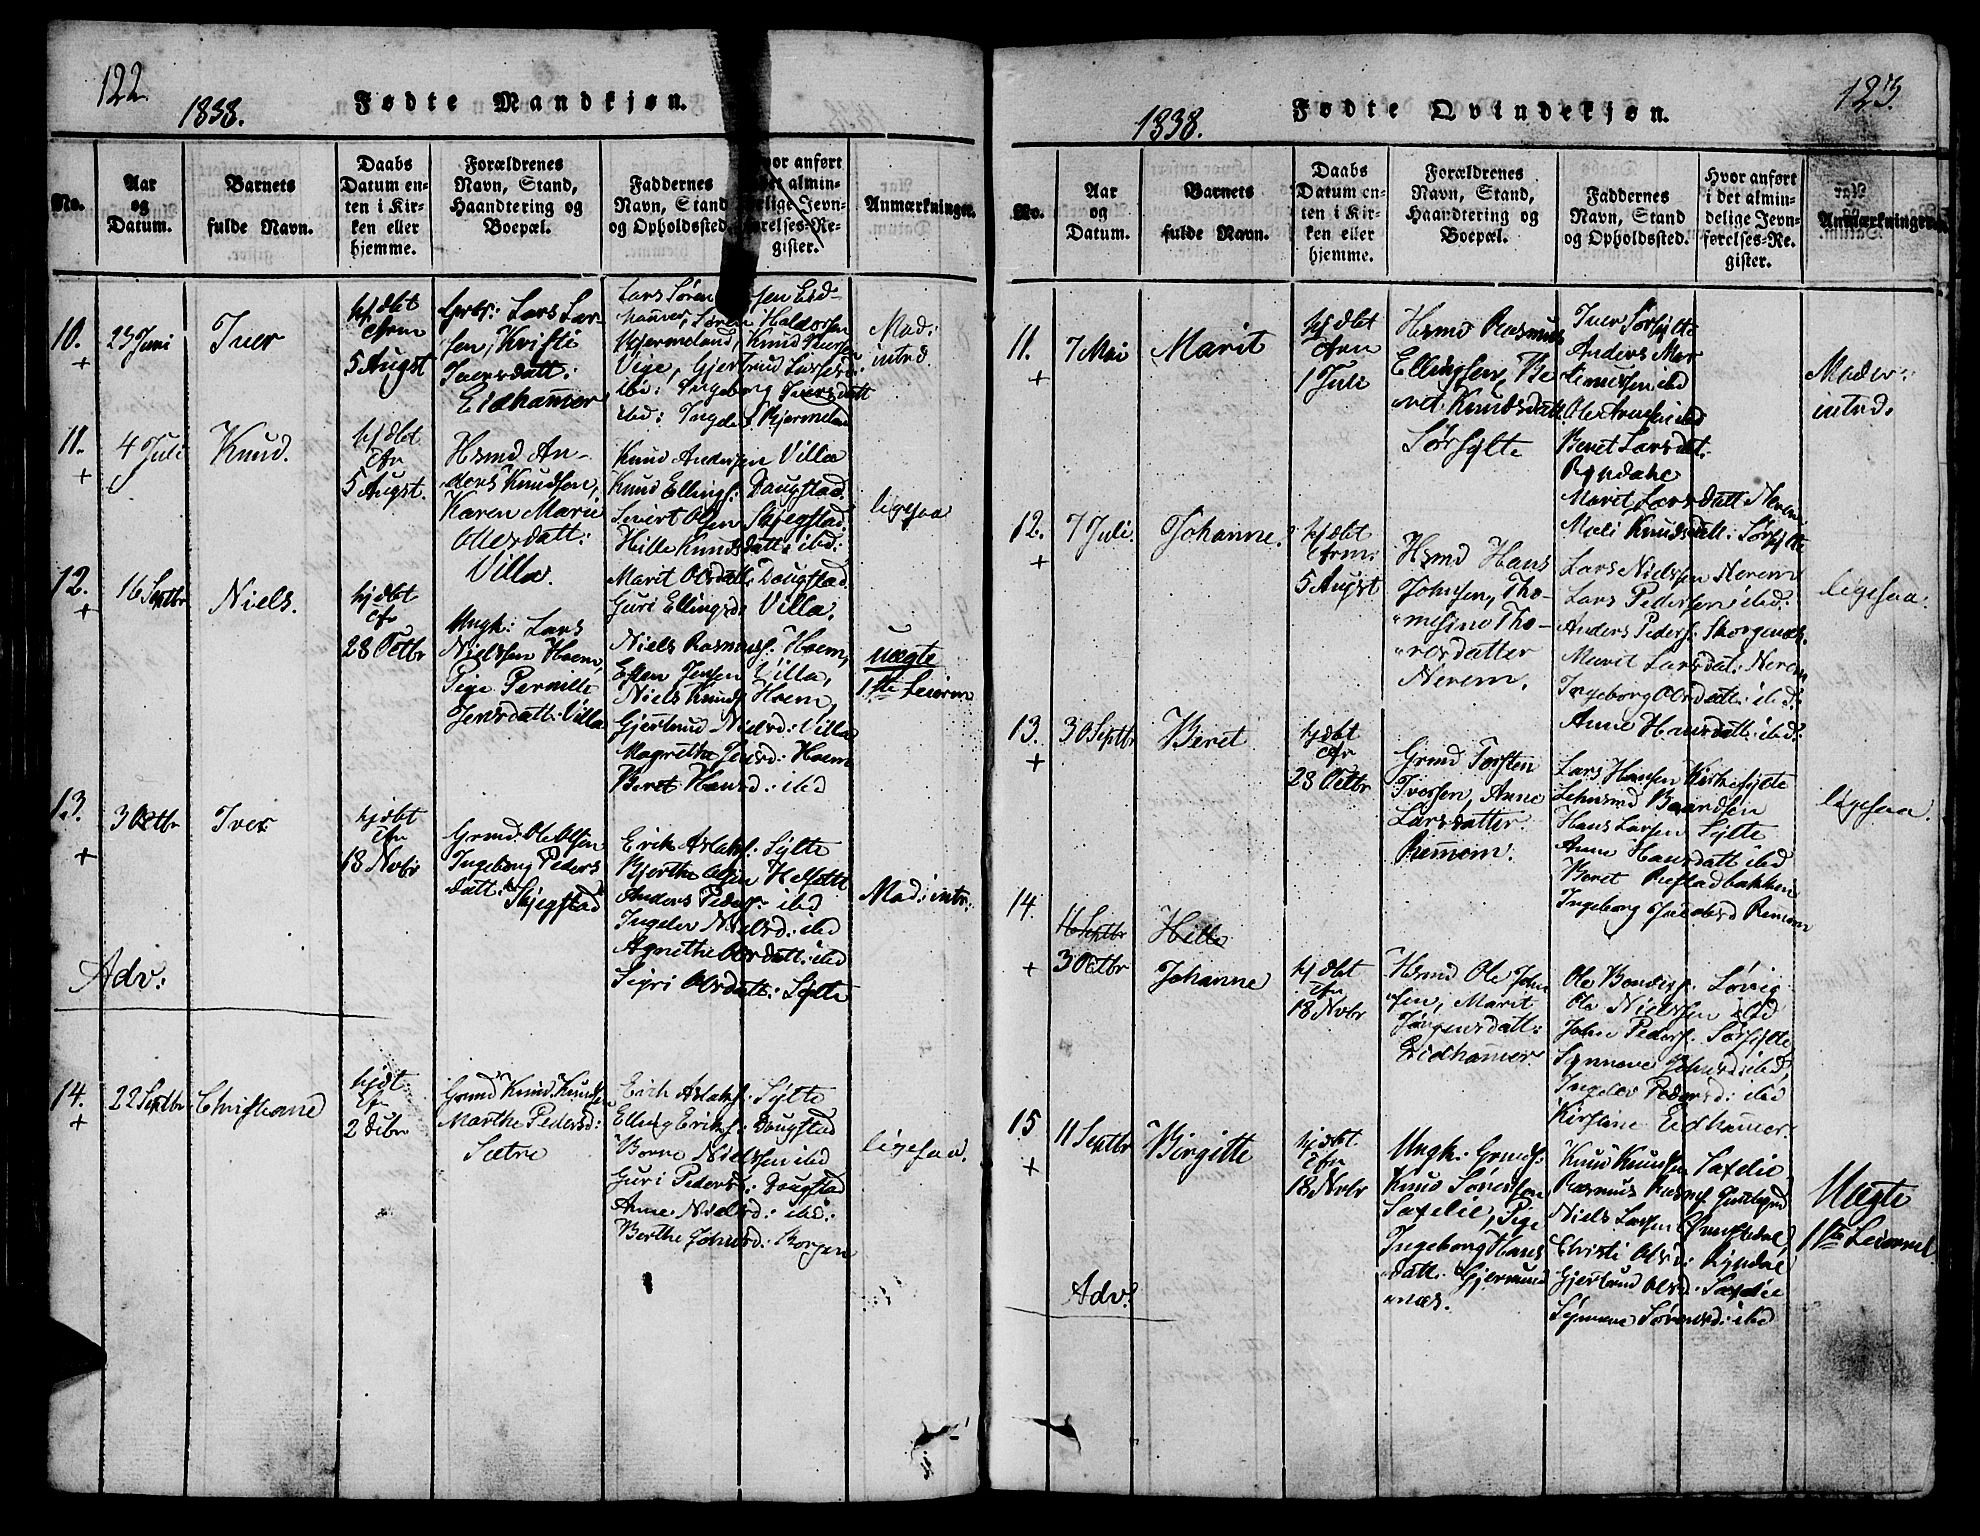 122.
1838.
Fødte Mandkjøn.
No.
Aar
og
Datum.
Barnets
fulde Navn.
Daabs
Datum en-
ten i Kir-
ken eller
hjemme.
Forældrenes
Navn, Stand,
Haandtering og
Boepæl.
Faddernes
Navn, Stand
og Opholdssted.
Hvor anført
i det almin-
delige Jevn-
førelses-Re-
gister.
Anmærkninger.
10.
+
23 Juni
Iver
hjdbt
Cfrm
5 August
Grbs: Lars Lar-
sen, Kristi
Iversdatt:
Eidhammer
Lars Sørensen Eid-
hammer, Søren Haldorsen
Hjermeland, Knud Iversen
Vige, Gjertrud Larsesd:
ibd: Ingeborg Iversdatt
ibd: Hjermeland
Mod:
intrd.
11.
+
4 Juli
Knud.
hjdbt
Cfr
5 August.
Hsmd An-
ders Knudsen,
Karen Marie
Ollesdatt:
Villa.
Knud Andersen Villa
Knud Ellings: Dougstad.
Sivert Olsen Skjegstad.
Hille Knudsdatt: ibd:
Marit Olsdatt: Dougstad.
Guri Ellingsd: Villa.
ligesaa
12.
+
16 Septbr
Niels.
hjdbt
Cfr
28 Octbr
Ungk: Lars
Nielssen Hoem,
Pige Pernille
Jensdatt: Villa
Niels Rasmuss: Hoem,
Esten Jensen Villa,
Niels Knuds: Hoem,
Gjertrud Nielsd: Villa
Magrethe Jensd: Hoem
Beret Hansd: ibd
uægte
1ste Leierm
13.
+
3 Octbr
Iver
hjdbt
Cfr
18 Nvbr
Grmd: Ole Olsen
Ingeborg Peders
datt: Skjegstad
Erik Aslaks: Sylte
Bjerthe Olsen Helsett
Anders Peders: ibd
Ingeler Nielsd: ibd
Agnethe Olsdatt: ibd
Sigri Olsdatt: Sylte
Mod: intr:
Adv:
14.
+
22 Septbr
Christiane
hjdt
Cfr
2 Dcbr
Grmd Knud Knudsen
Marthe Pedersd:
Sætre
Erich Aslaks: Sylte
Elling Eriks: Dougstad
Borne Nielssen ibd
Guri Pedersd: Dougstad
Anne Nielsd: ibd:
Berthe Johnsd: Skorgen
ligesaa.
123.
1838.
Fødte Qvindekjøn.
No.
Aar
og
Datum.
Barnets
fulde Navn.
Daabs
Datum en-
ten i Kir-
ken eller
hjemme.
Forældrenes
Navn, Stand,
Haandtering og
Boepæl.
Faddernes
Navn, Stand
og Opholdssted.
Hvor anført
i det almin-
delige Jevn-
førelses-Re-
gister.
Anmærkninger.
11.
+
7 Mai
Marit
hjdbt
Cfrm
1 Juli
Hsmd Rasmus
Ellingsen, Be
ret Knudsdatt.
Sørsylte
Iver Sørsylte
Anders Mor
timussen ibd
Ole ibd
Beret Larsdatt.
Ryndahl
Marit Larsdatt Nerem
Moli Knudsdatt: Sørsylte
Moder:
intrd.
12.
+
7 Juli
Johanne.
hjdbt
Cfrm:
5 August
Hsmd Hans
Johnsen, Tho-
mesine Tho-
resdatter
Nerem.
Lars Nielssen Nerem
Lars Pedersen ibd:
Anders Peders: Skorgenes.
Marit Larsdat: Nerem
Ingeborg Olsdatt: ibd:
Anne Hansdatt: ibd:
ligesaa.
13.
+
30 Septbr
Beret
hjdbt
Cfr
28 Octbr
Grmd Torsten
Iversen, Anne
Larsdatter.
Remem.
Lars Hansen Kirkesylte
Lehnsmd Baardsen
Hans Larsen Sylte
Anne Hansdatt ibd
Beret Restadbakken
Ingeborg Jacobsd Remem
ligesaa.
14.
+
16 Septbr
3 Octbr
Hille
Johanne
hjdbt
Cfr
18 Nvbr
Hsmd Ole John
sen, Marit
Jørgensdatt:
Eidhammer
Ole Bonders: Løvig
Ole Nielssen ibd
John Peders: Sørsylte
Synnøve Johnsd: ibd,
Ingeler Pedersd: ibd
Kirstine Eidhammer.
15.
+
11 Septbr
Birgitte
hjdbt
Cfr
18 Nvbr
Ungk: Grmds:
Knud Sørenssen
Saxelie, Pige
Ingeborg Hans
datt: Gjermund
næs.
Knud Knudsen Saxelie
Rasmus Rasms:
Niels Larsen
Christi Olsd: Ryndal
Gjertrud Olsd: Saxelie
Synnøve Sørensd: ibd
Uægte
1ste Leierml
Adv: